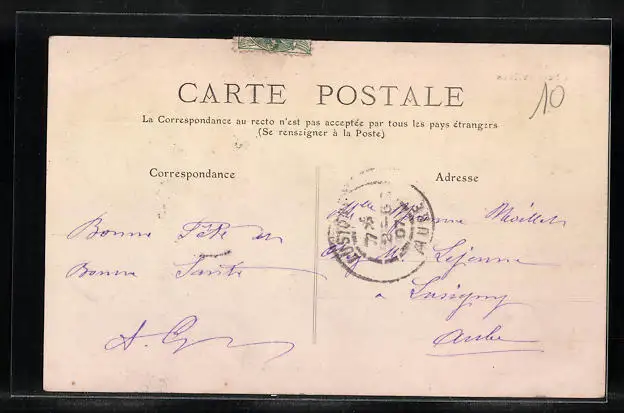 CARTE POSTALE
La Correspondance au recto n'est pas acceptée par tous les pays étrangers
(Se renseigner à la Poste)
10
Correspondance
Bonne Fête et
Bonne Santé
Adresse
Melle Maillet
Lejeune
à Lusigny
Aube
AUBE